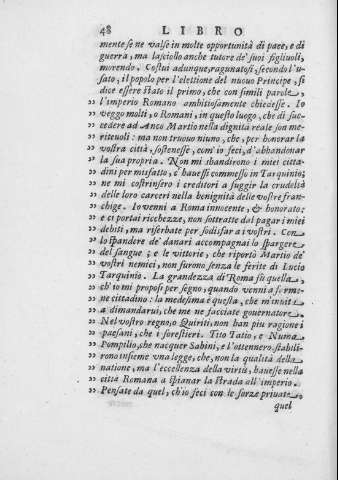 48 LIBRO
mente se ne valse in molte opportunità di pace, e di
guerra, ma lasciollo anche tutore de' suoi figliuoli,
morendo. Costui adunque, ragunatosi, secondo l'u-
sato, il popolo per l'elettione del nuouo Principe, si
dice essere stato il primo, che con simili parole,
" l'imperio Romano ambitiosamente chiedesse. Io
" veggo molti, o Romani, in questo luogo, che di suc-
" cedere ad Anco Martio nella dignità reale son me-
" riteuoli: ma non trouo niuno, che, per honorar la
" vostra città, sostenesse, com' io feci, d'abbandonar
" la sua propria. Non mi sbandirono i miei citta-
" dini per misfatto, c'hauessi commesso in Tarquinio;
" ne mi costrinsero i creditori a fuggir la crudeltà
" delle loro carceri nella benignità delle vostre fran-
" chige. Io venni a Roma innocente, & honorato:
" e ci portai ricchezze, non sottratte dal pagar i miei
" debiti, ma riserbate per sodisfar a i vostri. Con
" lo spandere de' danari accompagnai lo spargere
" del sangue; e le vittorie, che riportò Martio de'
" vostri nemici, non furono senza le ferite di Lucio
" Tarquinio. La grandezza di Roma fù quella,
" ch'io mi proposi per segno, quando venni a ferme-
" ne cittadino: la medesima è questa, che m'inuita
" a dimandarui, che me ne facciate gouernatore.
" Nel vostro regno, o Quiriti, non han piu ragione i
" paesani, che i forestieri. Tito Tatio, e Numa
" Pompilio, che nacquer Sabini, e l'ottennero, stabili-
" rono insieme vna legge, che, non la qualità della
" natione, ma l'eccellenza della virtù, hauesse nella
" città Romana a spianar la strada all'imperio.
" Pensate da quel, ch'io feci con le forze priuate,
quel